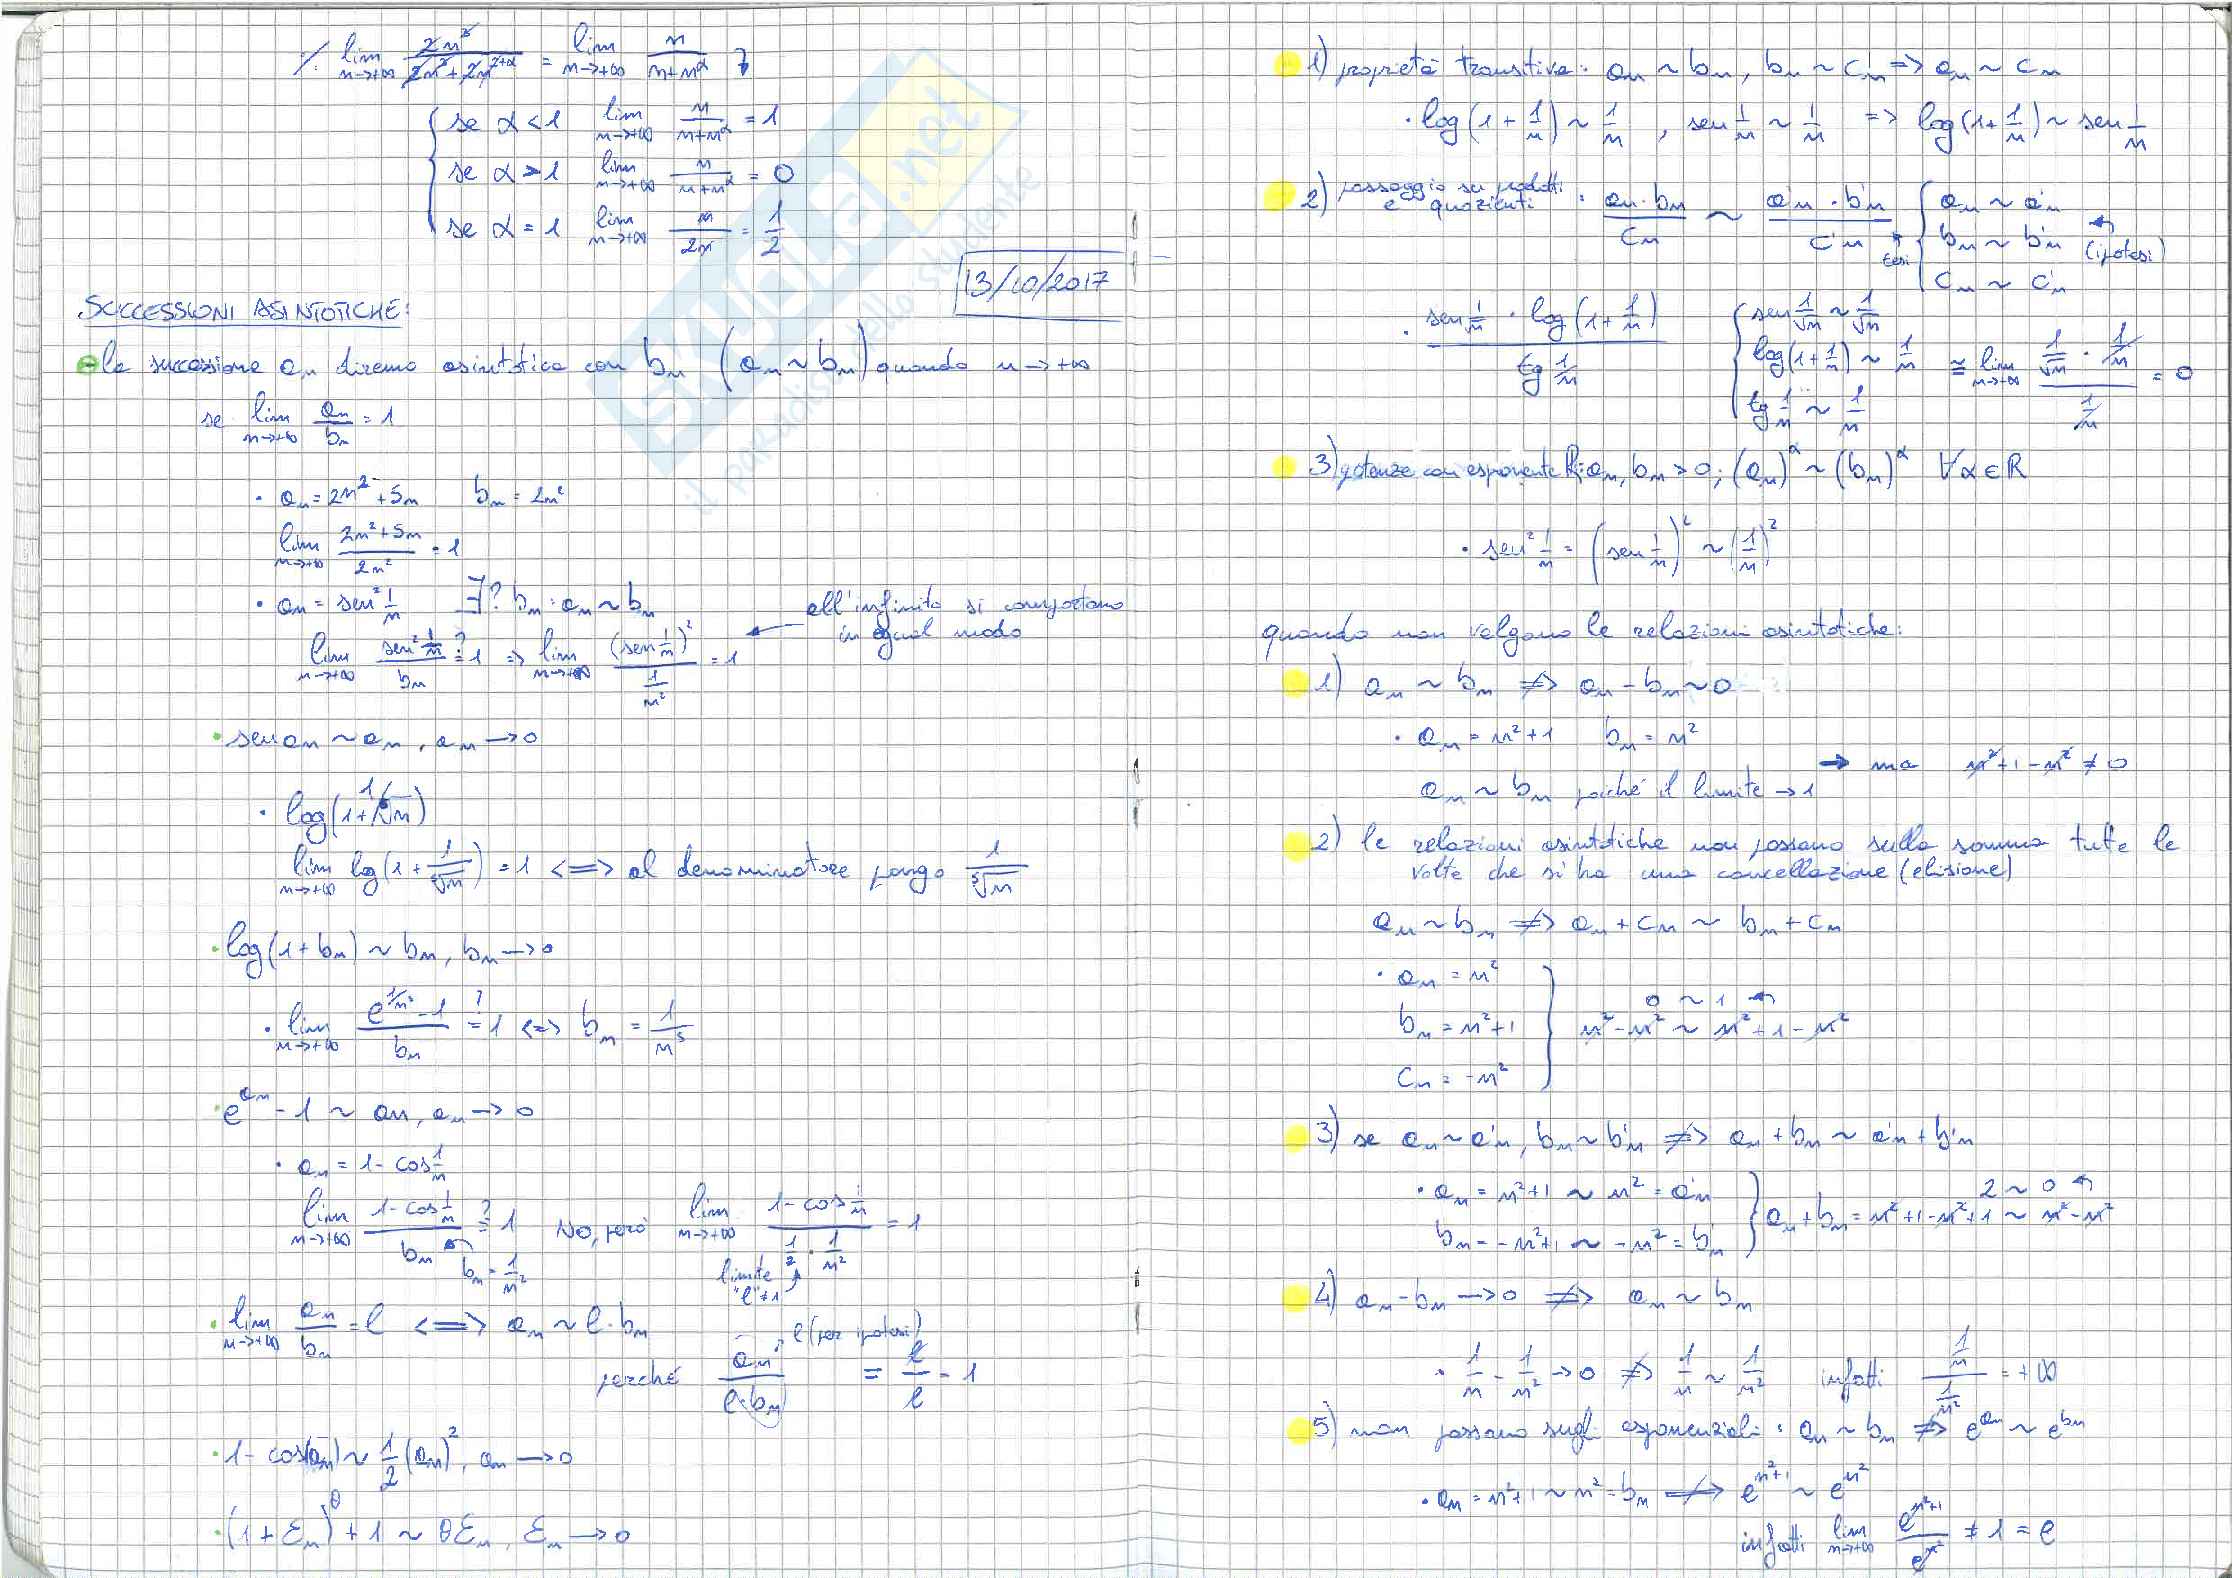 ·/. lim n→+∞ 2n² / (2n² + 2n^(2+α)) = lim n→+∞ n / (n+n^α)
se α < 1 lim n→+∞ n / (n+n^α) = 1
se α > 1 lim n→+∞ n / (n+n^α) = 0
se α = 1 lim n→+∞ n / 2n = 1/2
13/10/2017
SUCCESSIONI ASINTOTICHE:
la successione an diremo asintotica con bn (an ~ bn) quando n→+∞
se lim n→+∞ an/bn = 1
· an = 2n² + 5n bn = 2n²
lim n→+∞ (2n² + 5n) / 2n² = 1
· an = sen² 1/n ∃? bn : an ~ bn
all'infinito si comportano
in egual modo
lim n→+∞ sen² 1/n / bn =? 1 => lim n→+∞ (sen 1/n)² / (1/n²) = 1
· sen an ~ an, an → 0
· log(1 + 1/⁵√n)
lim n→+∞ log(1 + 1/⁵√n) = 1 <=> al denominatore pongo 1/⁵√n
· log(1 + bn) ~ bn, bn → 0
· lim n→+∞ (e^(1/n⁵) - 1) / bn =? 1 <=> bn = 1/n⁵
· e^an - 1 ~ an, an → 0
· an = 1 - cos 1/n
lim n→+∞ (1 - cos 1/n) / bn =? 1 NO, però lim n→+∞ (1 - cos 1/n) / (1/2 · 1/n²) = 1
bn = 1/n²
limite
"l" ≠ 1
· lim n→+∞ an/bn = l <=> an ~ l · bn
perché an / (l · bn) = l/l = 1
l (per ipotesi)
· 1 - cos(an) ~ 1/2 (an)², an → 0
· (1 + Ɛn)^θ + 1 ~ θƐn, Ɛn → 0
1) proprietà transitiva: an ~ bn, bn ~ cn => an ~ cn
· log(1 + 1/n) ~ 1/n, sen 1/n ~ 1/n => log(1 + 1/n) ~ sen 1/n
2) passaggio sui prodotti e quozienti : an · bn / cn ~ a'n · b'n / c'n
tesi
an ~ a'n
bn ~ b'n (ipotesi)
cn ~ c'n
· sen 1/√n · log(1 + 1/n) / tg 1/n
sen 1/√n ~ 1/√n
log(1 + 1/n) ~ 1/n
tg 1/n ~ 1/n
≅ lim n→+∞ (1/√n · 1/n) / (1/n) = 0
3) potenze con esponente R: an, bn > 0; (an)^α ~ (bn)^α ∀α∈R
· sen² 1/n = (sen 1/n)² ~ (1/n)²
quando non valgono le relazioni asintotiche:
1) an ~ bn ≠> an - bn ~ 0
· an = n² + 1 bn = n²
an ~ bn poiché il limite → 1 → ma n² + 1 - n² ≠ 0
2) le relazioni asintotiche non passano sulla somma tutte le
volte che si ha una cancellazione (elisione)
an ~ bn ≠> an + cn ~ bn + cn
· an = n²
bn = n² + 1
cn = -n²
0 ~ 1
n² - n² ~ n² + 1 - n²
3) se an ~ a'n, bn ~ b'n ≠> an + bn ~ a'n + b'n
· an = n² + 1 ~ n² = a'n
bn = -n² + 1 ~ -n² = b'n
2 ~ 0
an + bn = n² + 1 - n² + 1 ~ n² - n²
4) an - bn → 0 ≠> an ~ bn
· 1/n - 1/n² → 0 ≠> 1/n ~ 1/n² infatti (1/n) / (1/n²) = +∞
5) non passano sugli esponenziali : an ~ bn ≠> e^an ~ e^bn
· an = n² + 1 ~ n² = bn ≠> e^(n²+1) ~ e^(n²)
infatti lim n→+∞ e^(n²+1) / e^(n²) ≠ 1 = e
SKUOLA.net
il paradiso dello studente